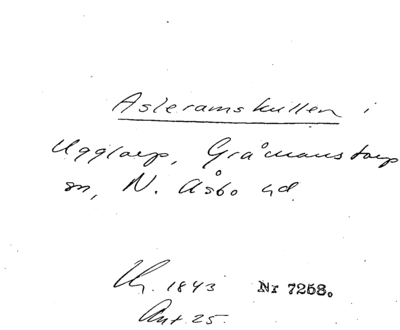 Asleramskullen i
Ugglarp, Gråmanstorp
sn, N. Åsbo hd.
1843 Nr 7258.
Ant. 25.